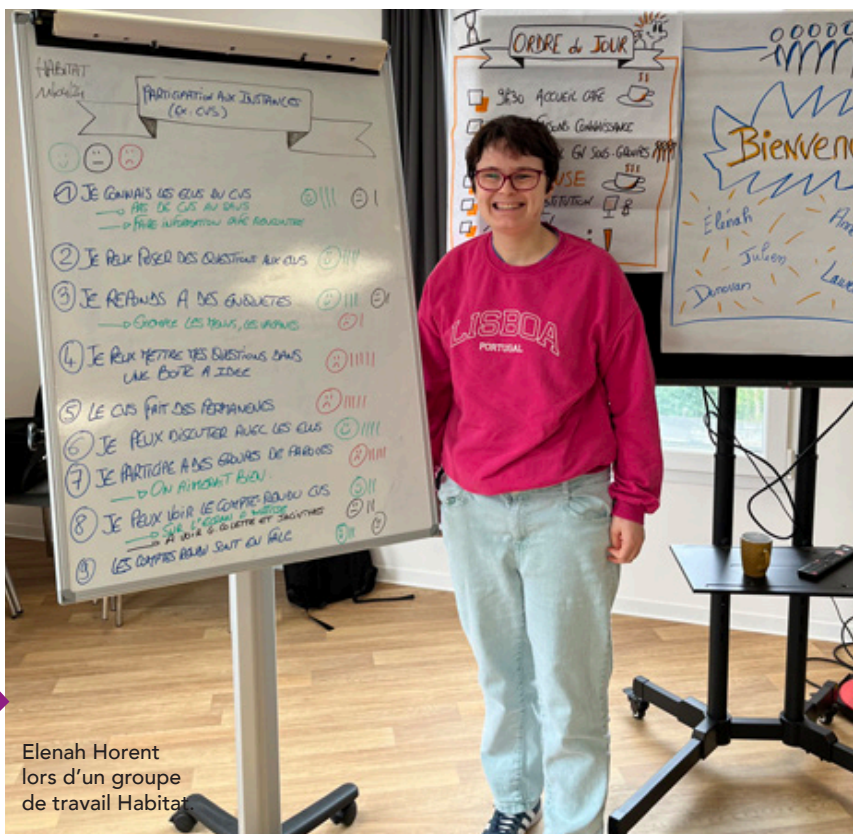 HABITAT
PARTICIPATION AUX INSTANCES
(EX. CVS)
① JE CONNAIS LES ELUS DU CVS
PAS DE CVS AU SAVS
FAIRE INFORMATION CAFE RENCONTRE
② JE PEUX POSER DES QUESTIONS AUX CVS
③ JE REPONDS A DES ENQUETES
EXEMPLE LES MENUS, LES VACANCES
④ JE PEUX METTRE MES QUESTIONS DANS
UNE BOITE A IDEE
⑤ LE CVS FAIT DES PERMANENCES
⑥ JE PEUX DISCUTER AVEC LES ELUS
⑦ JE PARTICIPE A DES GROUPES DE PAROLES
ON AIMERAIT BIEN.
⑧ JE PEUX VOIR LE COMPTE-RENDU CVS
SUR L'ECRAN A
A VOIR COLETTE ET JACINTHES
⑨ LES COMPTES RENDU SONT EN FALC
ORDRE du JOUR
9H30 ACCUEIL CAFE
CONNAISSANCE
EN SOUS-GROUPES
Bienven
Élenah
Julien
Donovan
LISBOA
PORTUGAL
Elenah Horent
lors d'un groupe
de travail Habitat.